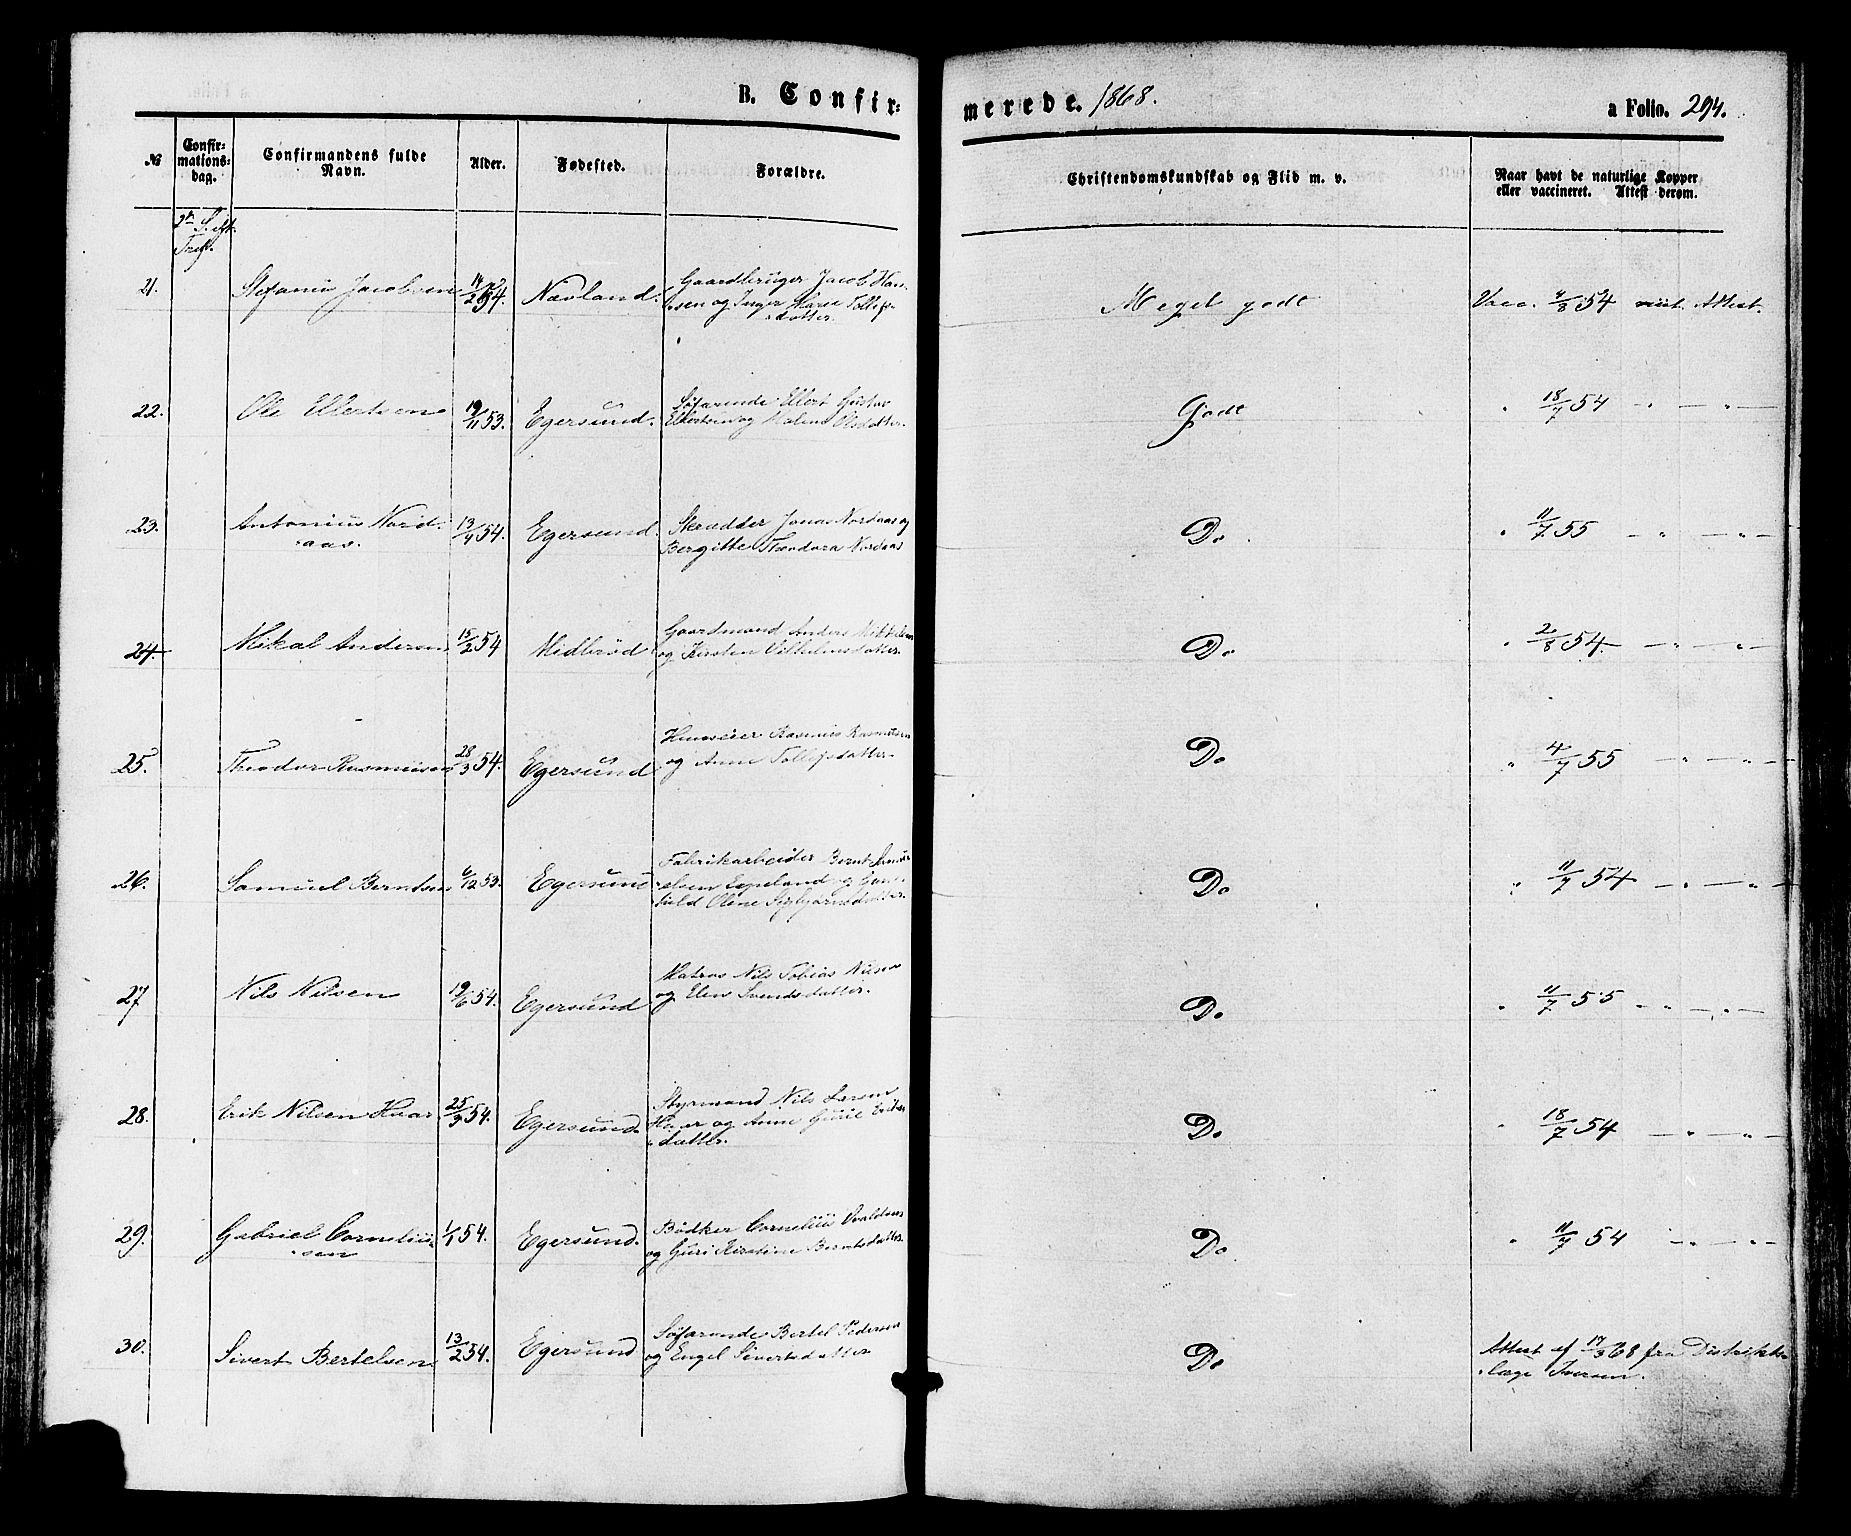 B. Confir=
merede. 1868.
a Folio. 294.
№
Confir=
mations=
dag.
Confirmandens fulde
Navn.
Alder.
Fødested.
Forældre.
Christendomskundskab og Flid m. v.
Naar havt de naturlige Kopper
eller vaccineret. Attest derom.
S. eft.
Tref.
21.
Jacobsen
54.
Navland.
Gaardbruger Jacob Han-
sen og Inger Marie Tollefs-
datter.
Meget godt
Vacc. 4/8 54 vist. Attest.
22.
Ole Ellertsen
19/11 53.
Egersund.
Søfarende Ellert Gustav
Ellertsen og Malene Olsdatter.
Godt
" 18/7 54 — " — " —
23.
Antonius Nord-
aas.
13/4 54.
Egersund.
Skrædder Jonas Nordaas og
Bergitte Theodora Nordaas
Do.
" 11/7 55 — " — " —
24.
Mikal Andersen
15/2 54
Midbrød
Gaardmand Anders Mikkelsen
og Kirsten Vilhelmsdatter.
Do
" 2/8 54. — " — " —
25.
Theodor Rasmusen
28/3 54.
Egersund
Huuseier Rasmus Rasmusen
og Anne Tollefsdatter.
Do
" 4/7 55 — " — " —
26.
Samuel Berntsen
6/12 53.
Egersund
Fabrikarbeider Bernt Samu-
elsen Espeland og Gun-
huld Olene Sigbjørnsdatter.
Do
" 11/7 54 — " — " —
27
Nils Nilsen
19/6 54.
Egersund
Matros Nils Tobias Nilsen
og Elen Svendsdatter.
Do
" 11/7 55 — " — " —
28.
Erik Nilsen Haar
25/3 54.
Egersund.
Styrmand Nils Larsen
Haar og Anne Gurie Eriks-
datter.
Do
" 18/7 54 — " — " —
29.
Gabriel Corneliu-
sen
1/1 54.
Egersund.
Bødker Cornelius Svaldsen
og Guri Kirstine Berntsdatter
Do
" 11/7 54 — " — " —
30.
Sivert Bertelsen
13/2 54.
Egersund
Søfarende Bertel Pedersen
og Engel Sivertsdatter
Do
Attest af 17/3 68 fra Distrikts-
læge Iversen.